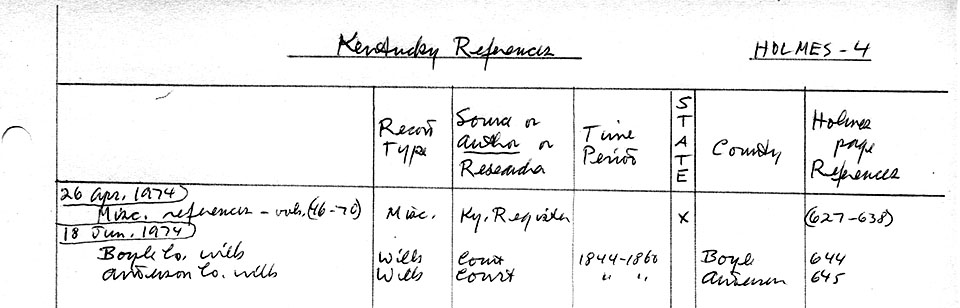 Kentucky References HOLMES - 4
Record Type Source or author or Researcher Time Period STATE County Holmes page References
26 Apr. 1974
Misc. references - vols. (46-70) Misc. Ky. Register X (627-638)
18 Jun. 1974
Boyle Co. wills Wills Court 1844-1860 Boyle 644
Anderson Co. wills Wills Court " " Anderson 645